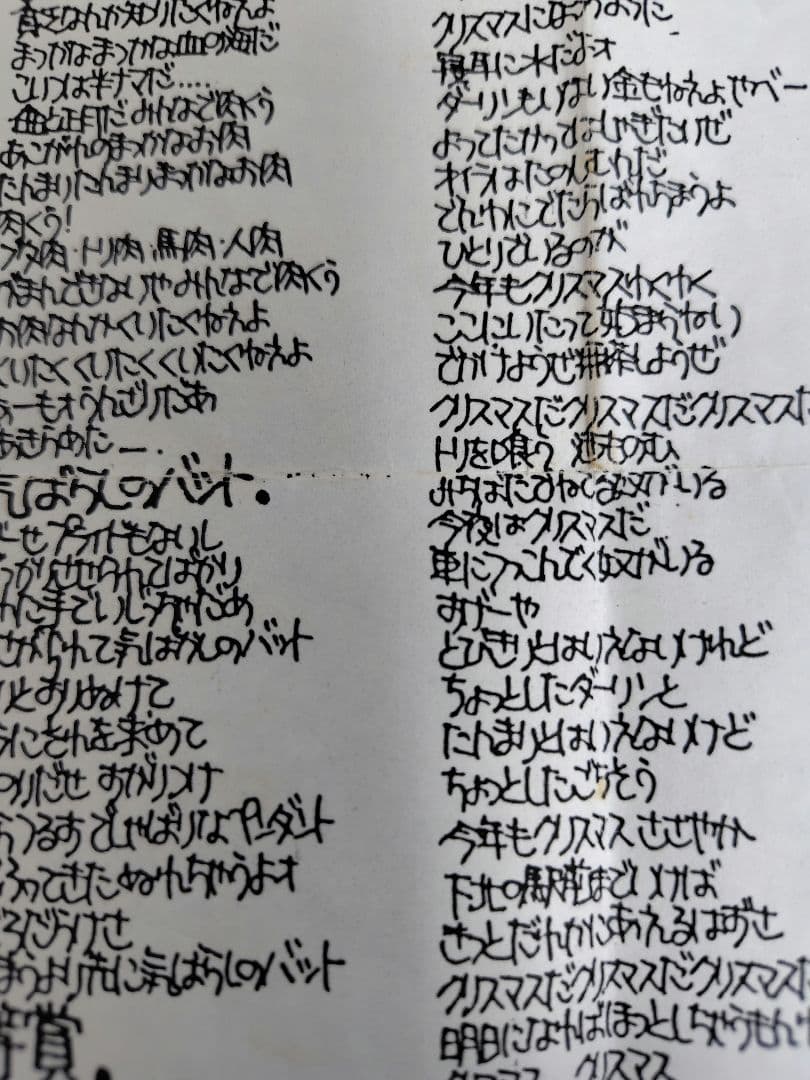 貧乏なんか知りたくねえよ
まっかなまっかな血の海だ
こいつは半ナマだ.....
盆と正月だ みんなで肉くう
あこがれのまっかなお肉
たんまりたんまりまっかなお肉
肉くう!
ブタ肉・トリ肉・馬肉・人肉
がまんできないや みんなで肉くう
お肉なんかくいたくねえよ
くいたくくいたくくいたくねえよ
あーもォうんざりだあ
あきらめたー.
気ばらしのバット.
せ プライドもないし
せられてばかり
に手でいじっちゃだめ
さがられて気ばらしのバット
にそれを求めて
のりだせ おがりつけ
でしゃばりなペンダント
ってきた ぬれちゃうよォ
だらけさ
まうより先に気ばらしのバット
賞.
クリスマスに
寝耳に水だよォ
ダーリンもいない金もねえよやべー
よってたかってはしゃぎたいぜ
オイラはたのしむんだ
でんわにでたらばれちまうよ
ひとりでいるのが
今年もクリスマスわくわく
ここにいたって始まらない
でかけようぜ 無茶しようぜ
クリスマスだクリスマスだクリスマスだ
トリを喰う 酒ものむ
みちばたでねてる奴がいる
今夜はクリスマスだ
車につっこんでく奴がいる
おげーや
とびきりとはいえないけれど
ちょっとしたダーリンと
たんまりとはいえないけど
ちょっとしたごちそう
今年もクリスマス ささやか
下北の駅前までいけば
きっとだれかにあえるはずさ
クリスマスだクリスマスだクリスマスだ
明日になればほっとしちゃうもん
クリスマス